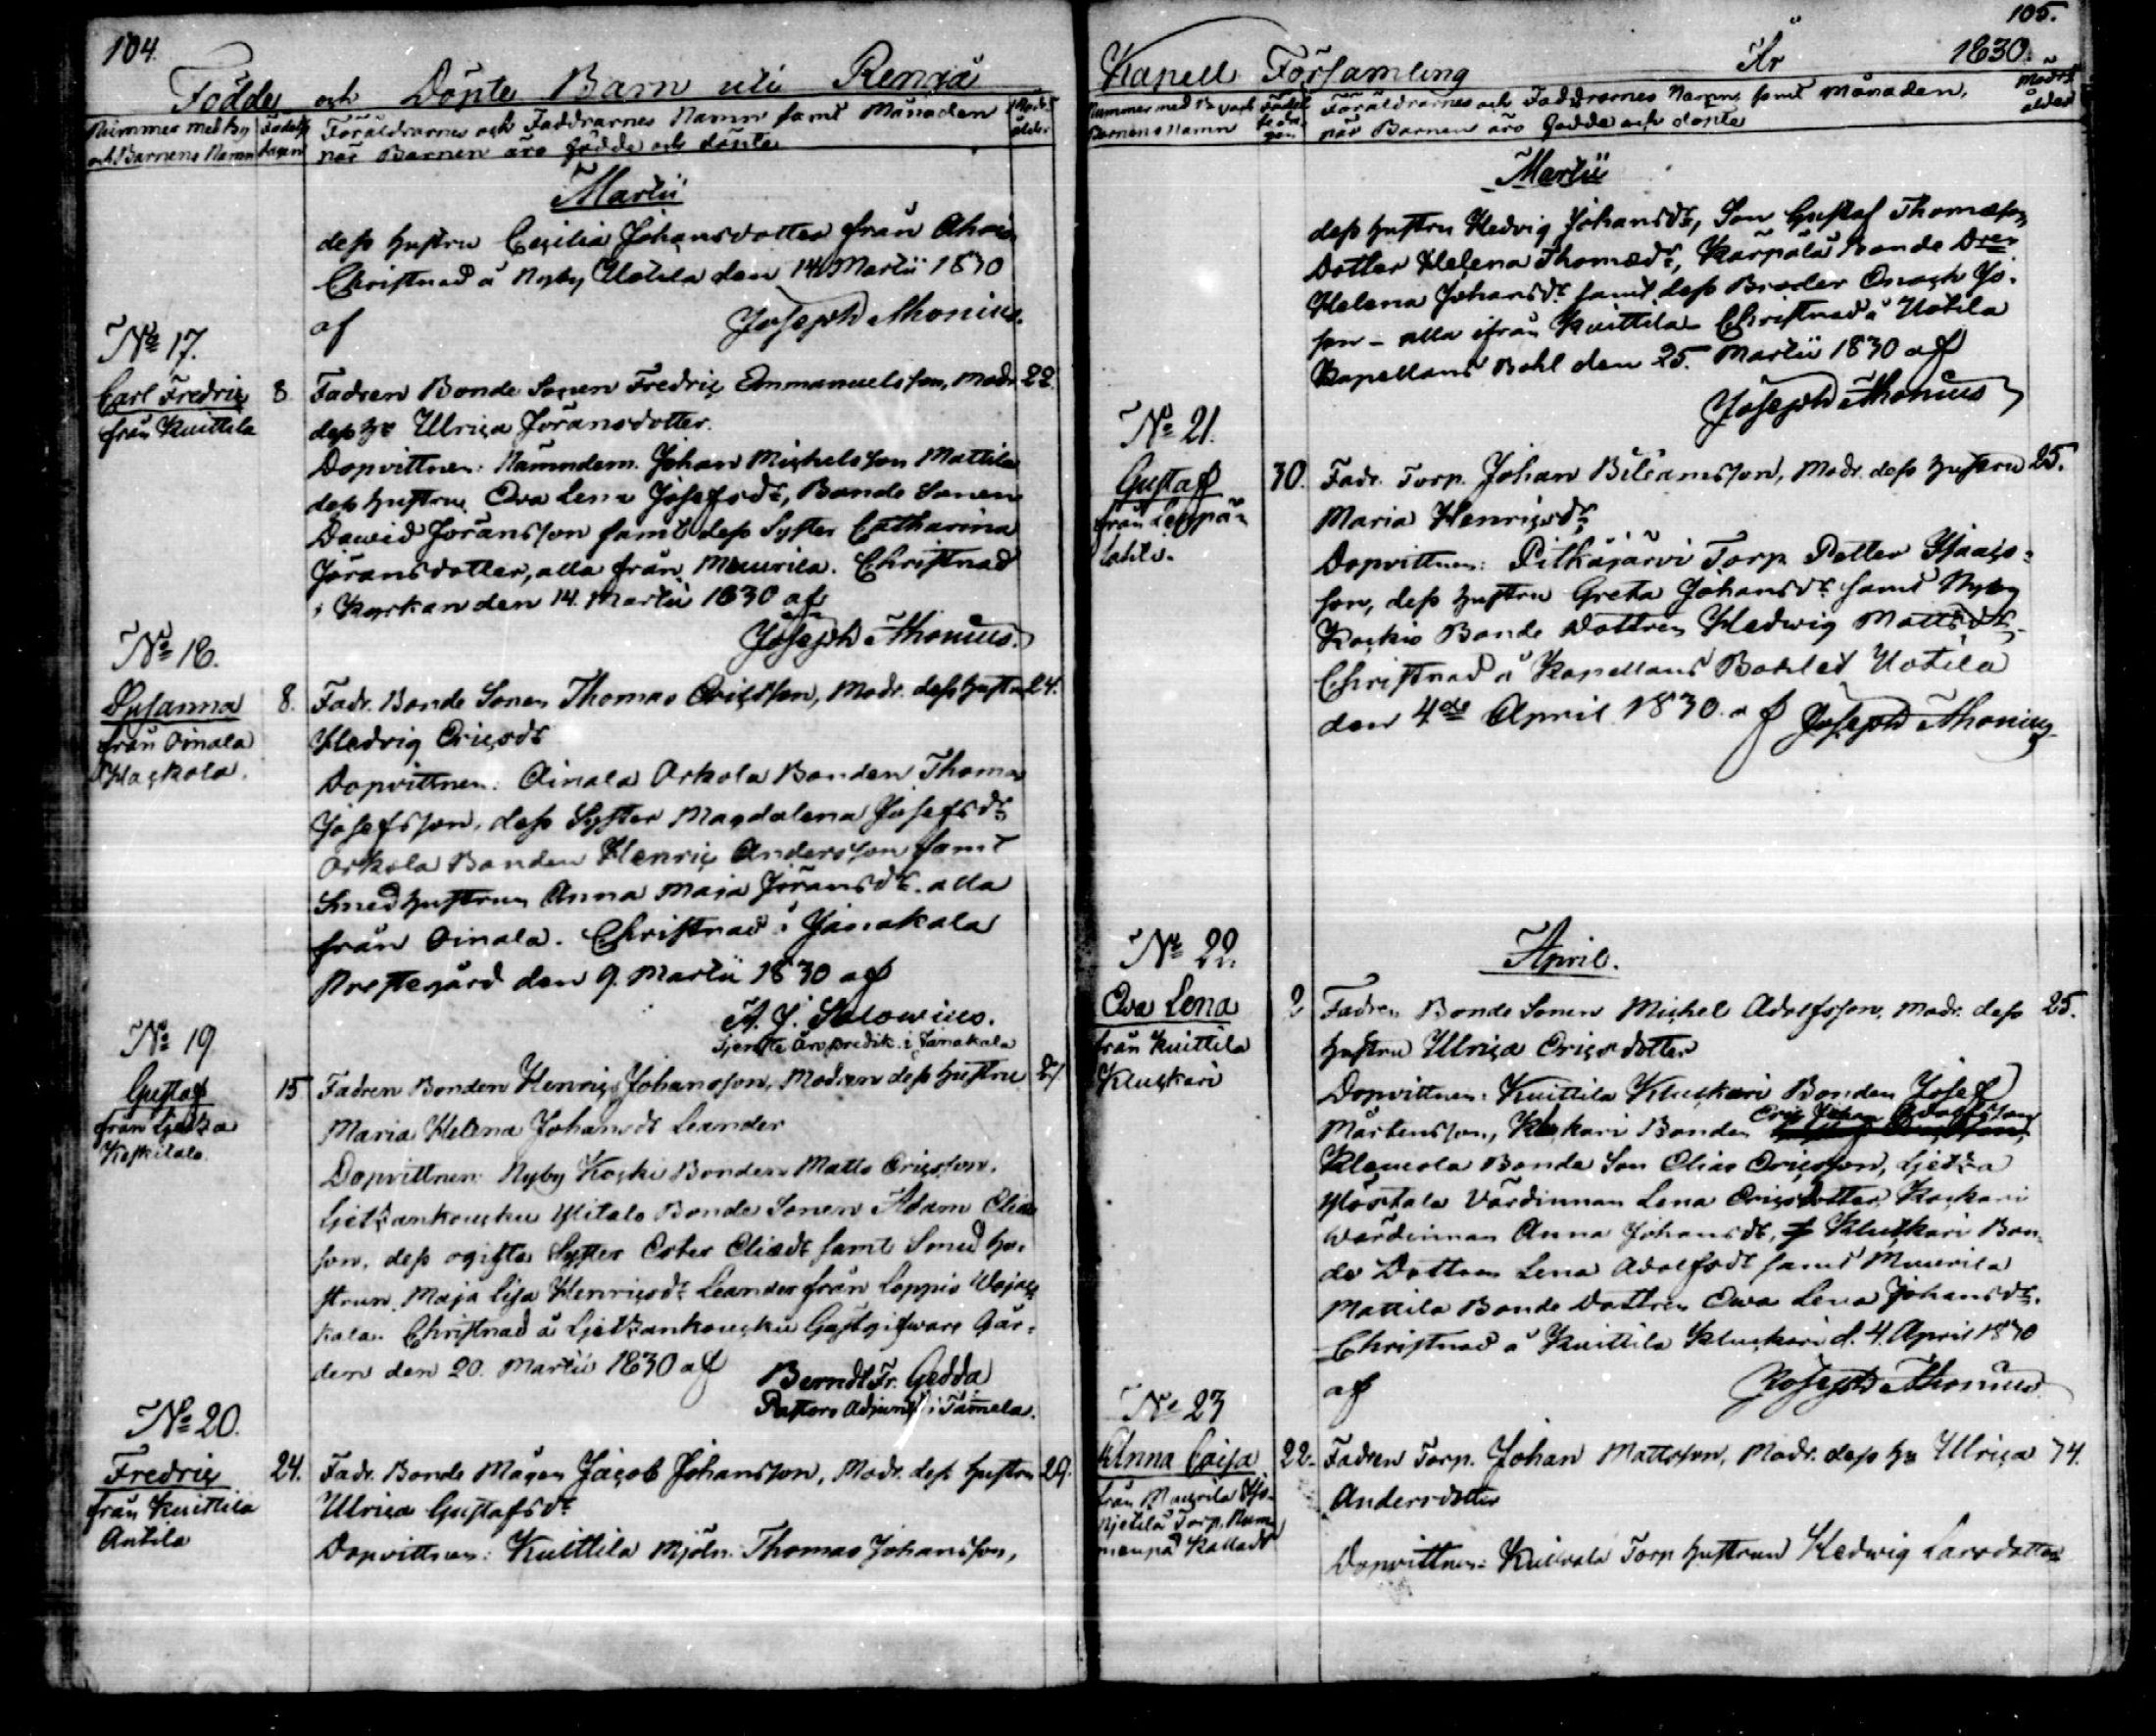 104.
Födde och Döpte Barn uti Rengå
Nummer med By och Barnens Namn
Födelsedagen
Föräldrarnes och Faddrarnes Namn samt Månaden
när Barnen äro födde och döpte
Modr: ålder
Martii
dess hustru Cecilia Johansdotter från Ahois
Christnad å Nyby Uotila den 14 Martii 1830
af Joseph Thonius.
No 17.
Carl Fredric
från Kuittila
8
Fadren Bonde Sonen Fredric Emmanuelsson, Modr. 22.
dess h. Ulrica Jöransdotter.
Dopvittnen: Nämndem. Johan Michelsson Mattila
dess hustru Eva Lena Josefsdr, Bonde Sonen
David Jöransson samt dess Syster Catharina
Jöransdotter, alla från Muurila. Christnad
i Kyrkan den 14. Martii 1830 af
Joseph Thonius.
No 18.
Susanna
från Oinala
8.
Fadr. Bonde Sonen Thomas Ericsson, Modr. dess hustru 24.
Hedvig Ericsdr
Dopvittnen: Oinala Orkola Bonden Thomas
Josefsson, dess Syster Magdalena Josefsdr
Orkola Bonden Henric Andersson samt
Smedhustrun Anna Maja Jöransdr. alla
från Oinala. Christnad i Janakala
Prestegård den 9. Martii 1830 af
A. J. Salovius.
i Janakala
No 19
Gustaf
från
15
Fadren Bonden Henric Johansson, Modren dess hustru 27
Maria Helena Johansdr Leander
Dopvittnen: Nyby Koski Bonden Matts Ericsson.
Ylitalo Bonde Sonen Adam Elias
son, dess ogifta Syster Ester Eliædr samt Smed hu-
strun Maja Lisa Henricsdr Leander från Loppis
kala. Christnad å Gästgifvare Går-
den den 20. Martii 1830 af
Berndt Fr. Gedda
Pastors Adjunct i Tammela.
No 20.
Fredric
från Kuittila
Antila
24.
Fadr. Bonde Mågen Jacob Johansson, Modr. dess hustru 29.
Ulrica Gustafsdr
Dopvittnen: Kuittila Mjöln. Thomas Johansson,
105.
Kapell Församling År 1830.
Nummer med By och
Barnens Namn
Födelsedagen
Föräldrarnes och Faddrarnes Namn samt Månaden,
när Barnen äro födde och döpte
Modrs ålder
Martii
dess hustru Hedvig Johansdr, Son Gustaf Thomasson
Dotter Helena Thomædr, Karpala Bonde Dren
Helena Johansdr samt dess Broder Enoch Jo-
son – alla ifrån Kuittila. Christnad å Uotila
Kapellans Bohl den 25. Martii 1830 af
Joseph Thonius
No 21.
Gustaf
från Leppä-
lahti.
30.
Fadr. Torp. Johan Bileamsson, Modr. dess hustru 25.
Maria Henricsdr
Dopvittnen: Pitkäjärvi Torp. Petter Isaacs-
son, dess hustru Greta Johansdr samt Nyby
Koskis Bonde Dottren Hedwig Mattsdr.
Christnad å Kapellans Bohlet Uotila
den 4de April 1830. af Joseph Thonius
No 22.
April.
Eva Lena
från Kuittila
Kluskari
2
Fadren Bonde Sonen Michel Adolfsson, Modr. dess 25.
hustru Ulrica Ericsdotter
Dopvittnen: Kuittila Kluskari Bonden Josef
Mårtensson, Bonden Eric Johan Adolfsson
Klemola Bonde Son Elias Ericsson,
Värdinnan Lena Ericsdotter
Wärdinnan Anna Johansdr, Kluskari Bon-
de Dottren Lena Adolfsdr samt Muurila
Mattila Bonde Dottren Ewa Lena Johansdr.
Christnad å Kuittila Kluskari d. 4. April 1830
af Joseph Thonius
No 23
Anna Caisa
från Muurila
Torp.
22.
Fadren Torp. Johan Mattsson, Modr. dess h. Ulrica 74.
Andersdotter
Dopvittnen: Torp hustrun Hedwig Larsdotter